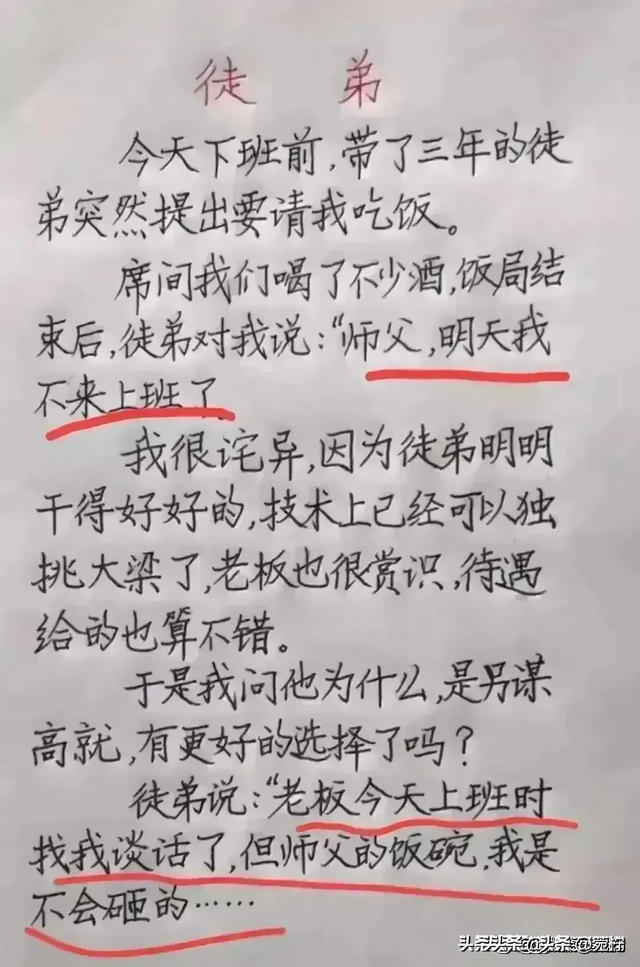 徒 弟
今天下班前,带了三年的徒
弟突然提出要请我吃饭。
席间我们喝了不少酒,饭局结
束后,徒弟对我说:“师父,明天我
不来上班了
我很诧异,因为徒弟明明
干得好好的,技术上已经可以独
挑大梁了,老板也很赏识,待遇
给的也算不错。
于是我问他为什么,是另谋
高就,有更好的选择了吗?
徒弟说:“老板今天上班时
找我谈话了,但师父的饭碗,我是
不会砸的……